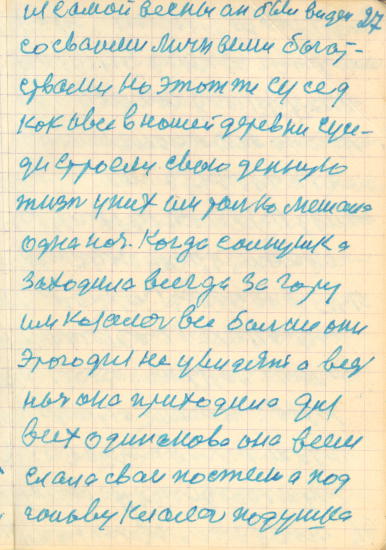 27
и самой весны он были виден
со сваими личн веми богат-
ствами но этот же сусед
как и все в нашей деревни суси-
ди строели сваю денную
жизн у них им толко мешала
одна ноч. Когда солнушка
заходила всегда за гору
им казалос все больше они
этогодня не увидят а вед
ноч она приходила для
всех одинакова она всем
слала сваи постели а под
голову клала подушка